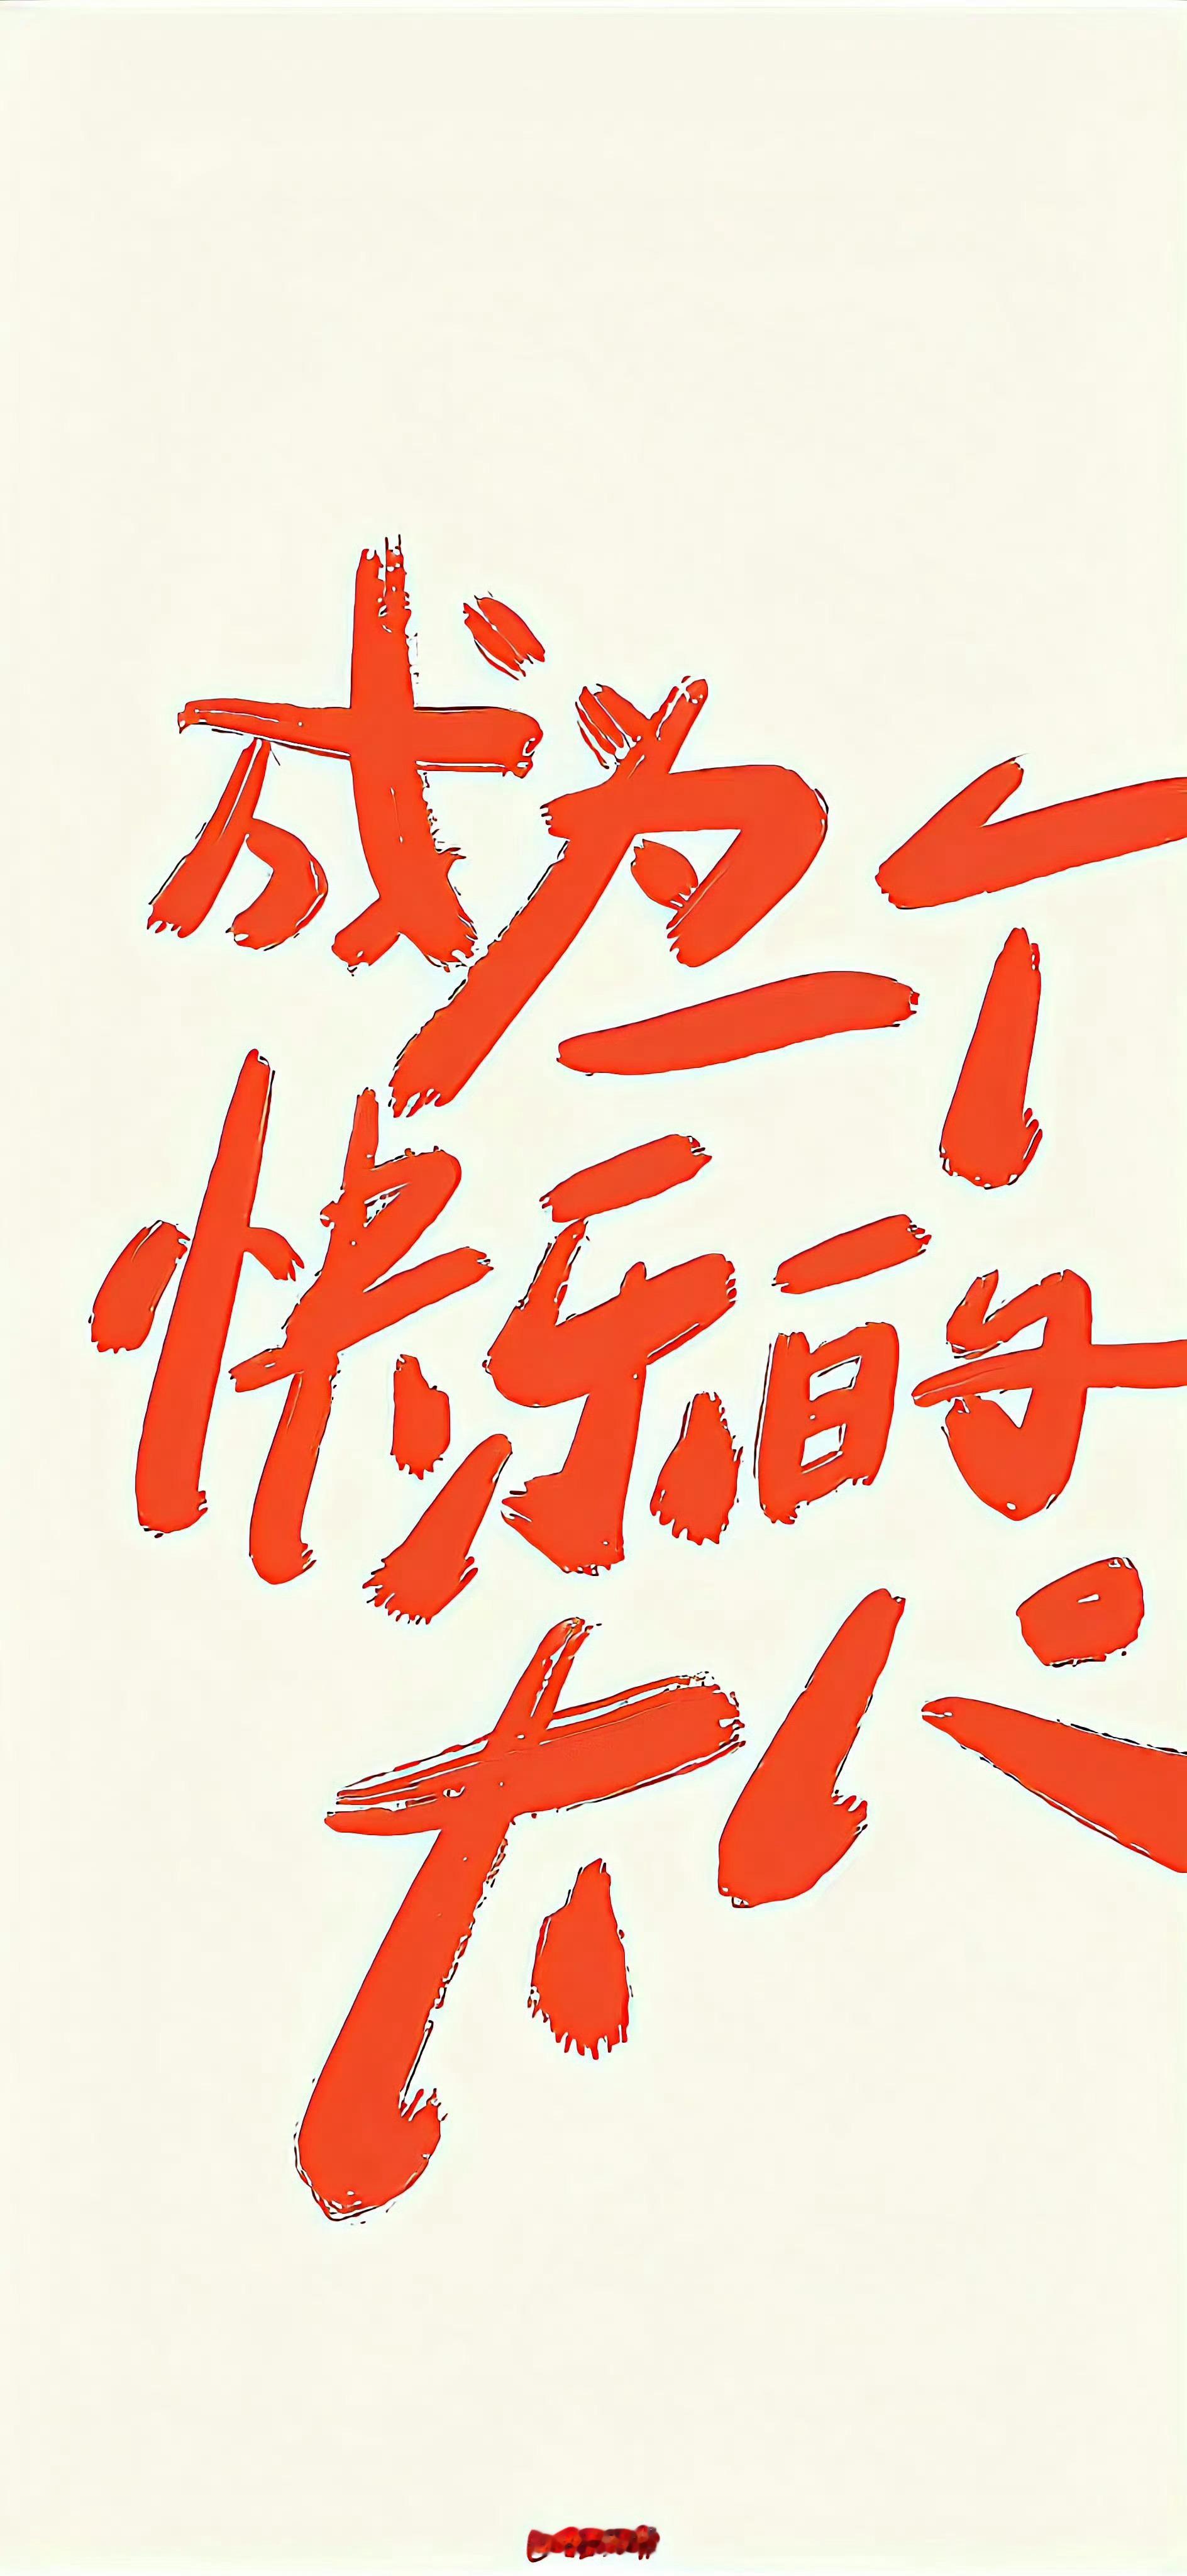 成为一个
快乐的
大人